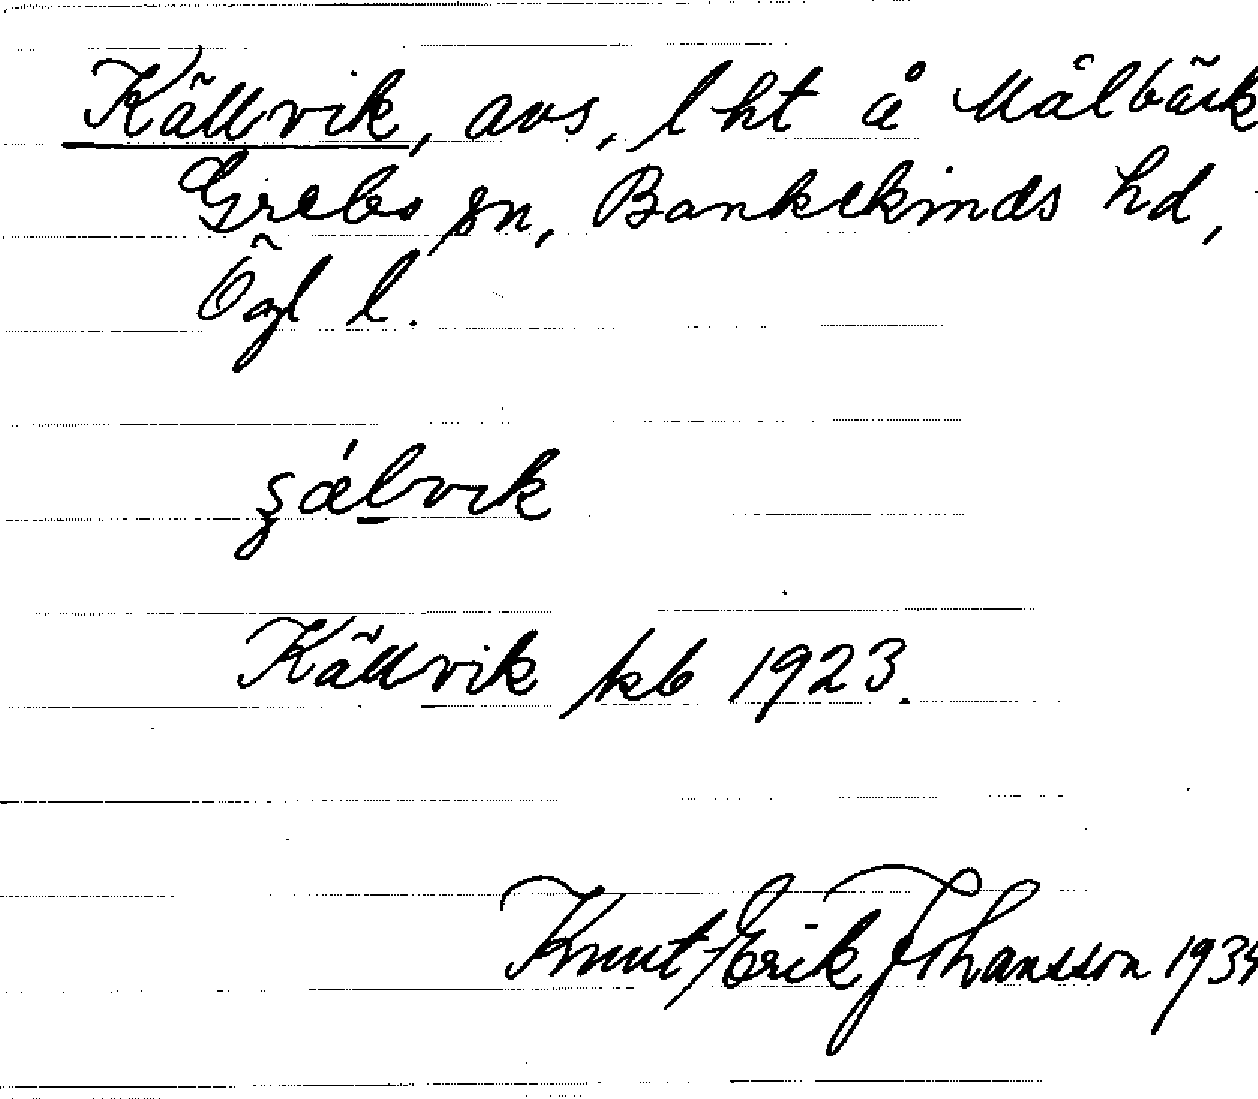 Källvik, avs, lht å Målbäck
Grebo sn, Bankekinds hd,
Ögl l.
Källvik kb 1923.
Knut Erik Johansson